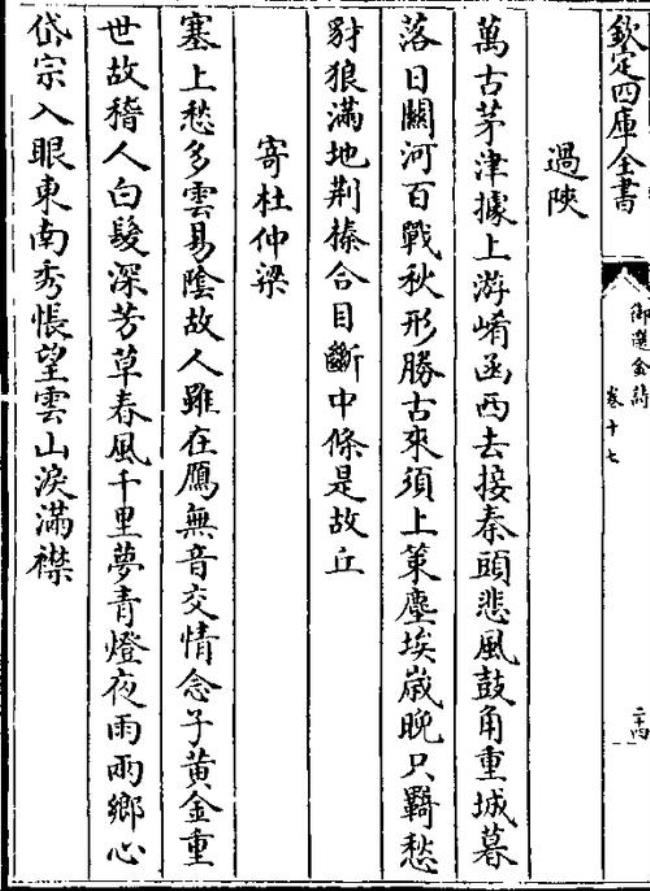 欽定四庫全書
御選金詩
卷十七
二十四
過陜
萬古茅津據上游崤函西去接秦頭悲風鼓角重城暮
落日關河百戰秋形勝古來須上策塵埃歲晩只羇愁
豺狼滿地荆榛合目斷中條是故丘
寄杜仲梁
塞上愁多雲易陰故人雖在鴈無音交情念子黄金重
世故稽人白髮深芳草春風千里夢青燈夜雨兩鄉心
岱宗入眼東南秀悵望雲山淚滿襟